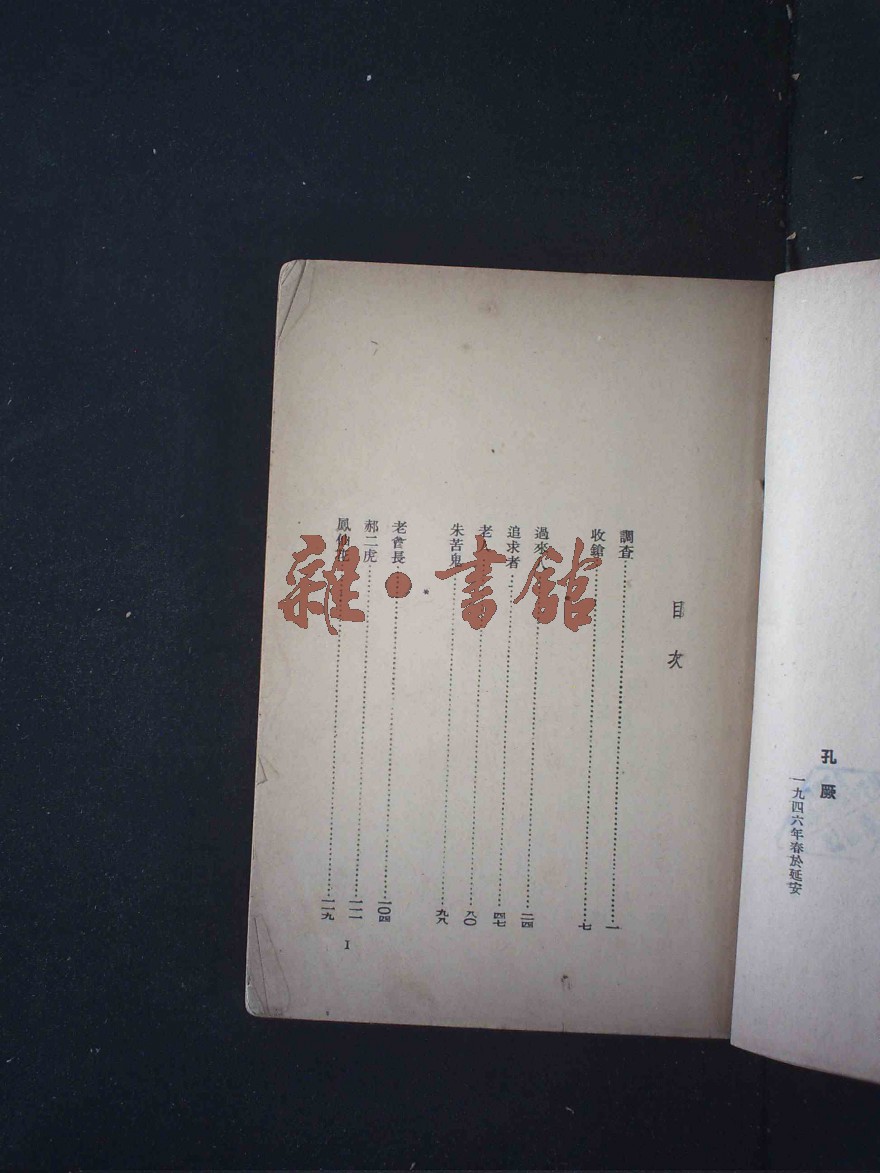 孔厥
一九四六年春於延安
目次
調查 一
收鎗 七
過來 二四
追求者 四七
老人 八〇
朱苦鬼 九八
老會長 一〇四
郝二虎 一一一
鳳仙花 一一九
I
雜·書館